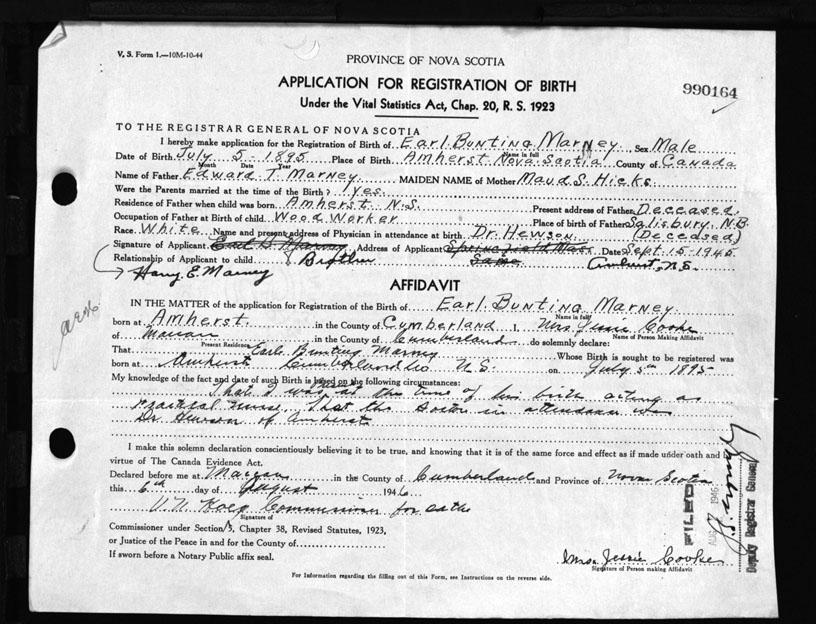 V. S. Form 1.—10M-10-44
PROVINCE OF NOVA SCOTIA
APPLICATION FOR REGISTRATION OF BIRTH
990164
Under the Vital Statistics Act, Chap. 20, R. S. 1923
TO THE REGISTRAR GENERAL OF NOVA SCOTIA
I hereby make application for the Registration of Birth of Earl Bunting Marney Sex Male
Name in full
Date of Birth July 5 - 1895 Place of Birth Amherst Nova Scotia County of Canada
Month Date Year
Name of Father Edward T. Marney MAIDEN NAME of Mother Maud S. Hicks
Were the Parents married at the time of the Birth? Yes.
Residence of Father when child was born Amherst N.S. Present address of Father Deceased.
Occupation of Father at Birth of child Wood Worker Place of birth of Father Salisbury N.B.
Race White Name and present address of Physician in attendance at birth Dr. Hewson (Deceased)
Signature of Applicant Earl B. Marney Address of Applicant Springfield Mass Date Sept. 15-1945
Relationship of Applicant to child Brother Same Amherst, N.S.
Harry E. Marney
AFFIDAVIT
IN THE MATTER of the application for Registration of the Birth of Earl Bunting Marney
Name in full
born at Amherst in the County of Cumberland I, Mrs Jessie Cooke
Name of Person making Affidavit
of Maccan in the County of Cumberland do solemnly declare:
Present Residence
That Earle Bunting Marney Whose Birth is sought to be registered was
born at Amherst Cumberland Co N.S. on July 5th 1895
My knowledge of the fact and date of such Birth is based on the following circumstances:
That I was at the time of his birth acting as
practical nurse. That the Doctor in attendance was
Dr. Hewson of Amherst
I make this solemn declaration conscientiously believing it to be true, and knowing that it is of the same force and effect as if made under oath and by
virtue of The Canada Evidence Act.
Declared before me at Maccan in the County of Cumberland and Province of Nova Scotia
this 6th day of August 1946
Commissioner for oaths
Signature of
Commissioner under Section 3, Chapter 38, Revised Statutes, 1923,
or Justice of the Peace in and for the County of
If sworn before a Notary Public affix seal.
Mrs Jessie Cooke
Signature of Person making Affidavit
For Information regarding the filling out of this Form, see Instructions on the reverse side.
FILED
AUG 1946
Deputy Registrar General